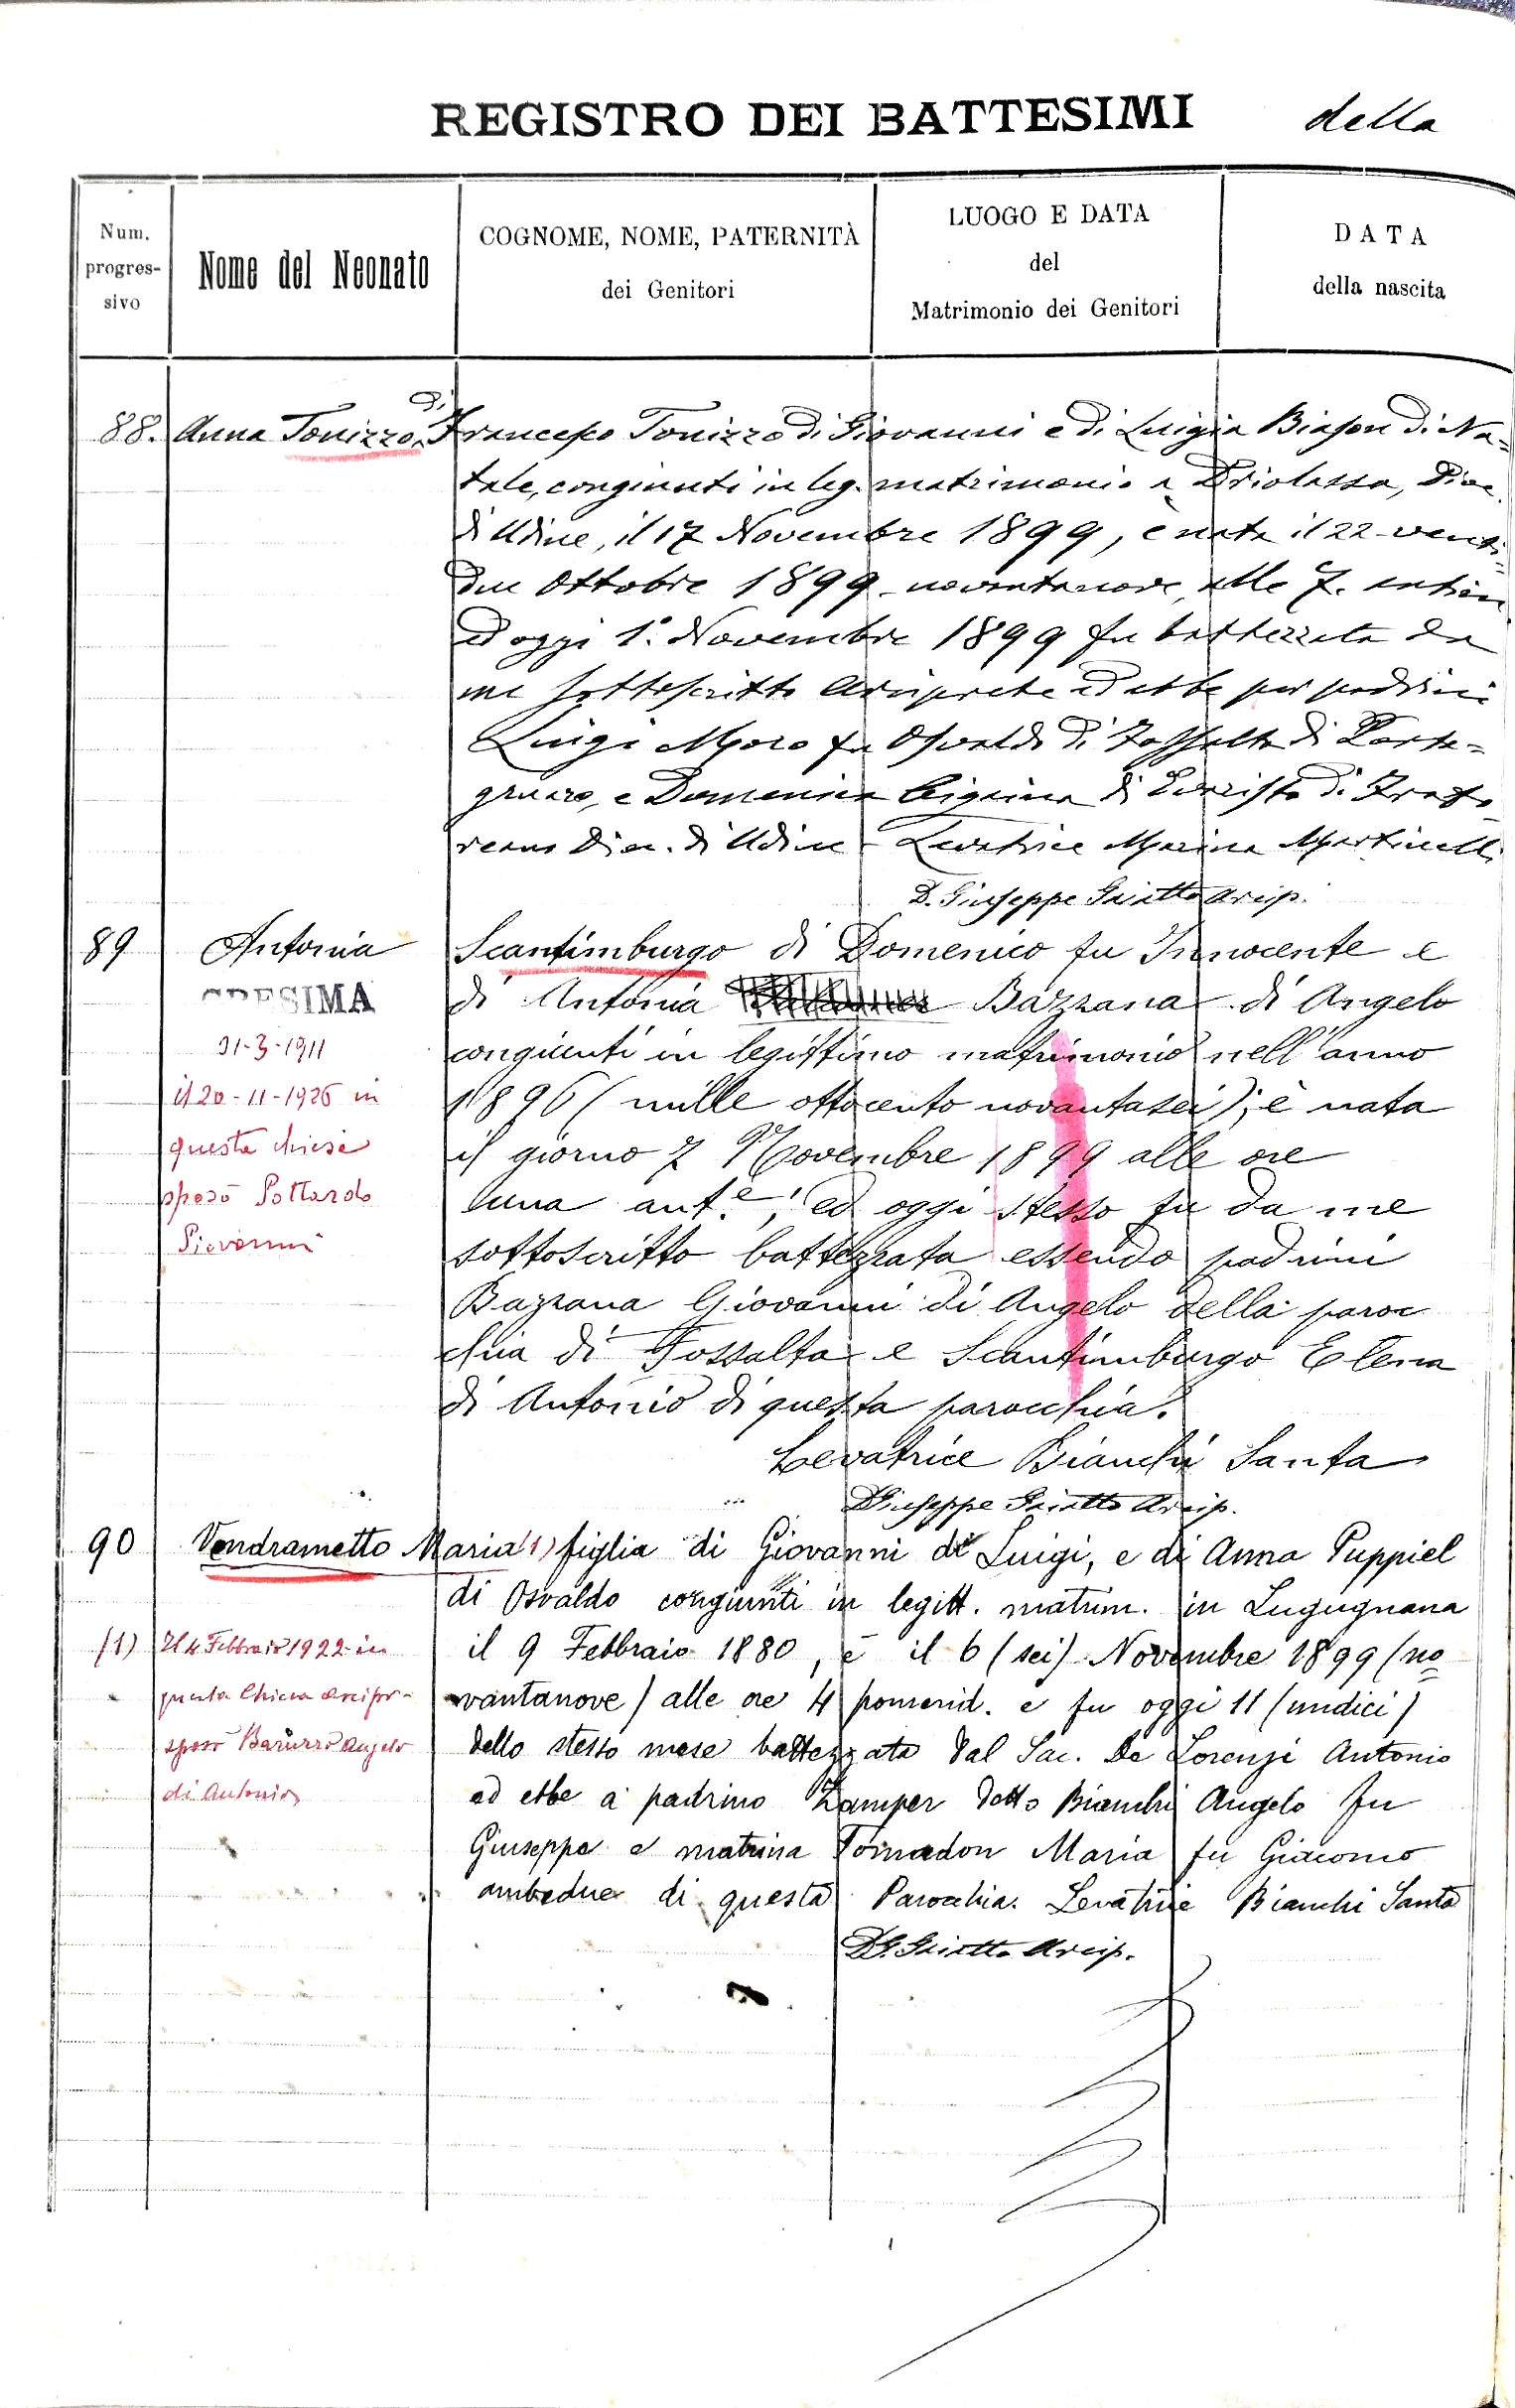 REGISTRO DEI BATTESIMI della
Num. progres- sivo
Nome del Neonato
COGNOME, NOME, PATERNITÀ
dei Genitori
LUOGO E DATA
del
Matrimonio dei Genitori
DATA
della nascita
88. Anna Tonizzo, di Francesco Tonizzo di Giovanni e di Luigia Biason di Na-
tale, congiunti in leg. matrimonio a Driolassa, Dioc.
di Udine, il 17 Novembre 1899, è nata il 22 - venti-
due Ottobre 1899 - novantanove, alle 7. antim
ed oggi 1.º Novembre 1899 fu battezzata da
me sottoscritto Arciprete ed ebbe per padrini
Luigi Moro fu Osvaldo di Fossalta di Porto-
gruaro, e Domenica di Evaristo di
Dioc. di Udine - Levatrice Marina Martinelli
D. Giuseppe Arcip.
89 Antonia Scantimburgo di Domenico fu Innocente e
CRESIMA
di Antonia Bazzana di Angelo
31-3-1911
congiunti in legittimo matrimonio nell'anno
il 20-11-1926 in
1896 (mille ottocento novantasei); è nata
questa chiesa
il giorno 7 Novembre 1899 alle ore
sposò Pottardo
una ant.e, ed oggi stesso fu da me
Giovanni
sottoscritto battezzata essendo padrini
Bazzana Giovanni di Angelo della paroc
chia di Fossalta e Scantimburgo Elena
di Antonio di questa parocchia.
Levatrice Bianchi Santa
D. Giuseppe Arcip.
90 Vendrametto Maria (1) figlia di Giovanni di Luigi, e di Anna Puppiel
di Osvaldo congiunti in legitt. matrim. in Lugugnana
(1) Il 4 Febbraio 1922 in
il 9 Febbraio 1880, è il 6 (sei) Novembre 1899 (no-
questa Chiesa arcipr.
vantanove) alle ore 4 pomerid. e fu oggi 11 (undici)
sposò Baruzzo Angelo
dello stesso mese battezzata dal Sac. De Lorenzi Antonio
di Antonio
ed ebbe a padrino Zamper detto Bianchi Angelo fu
Giuseppe e matrina Tomadon Maria fu Giacomo
ambedue di questa Parocchia. Levatrice Bianchi Santa
D. G. Arcip.